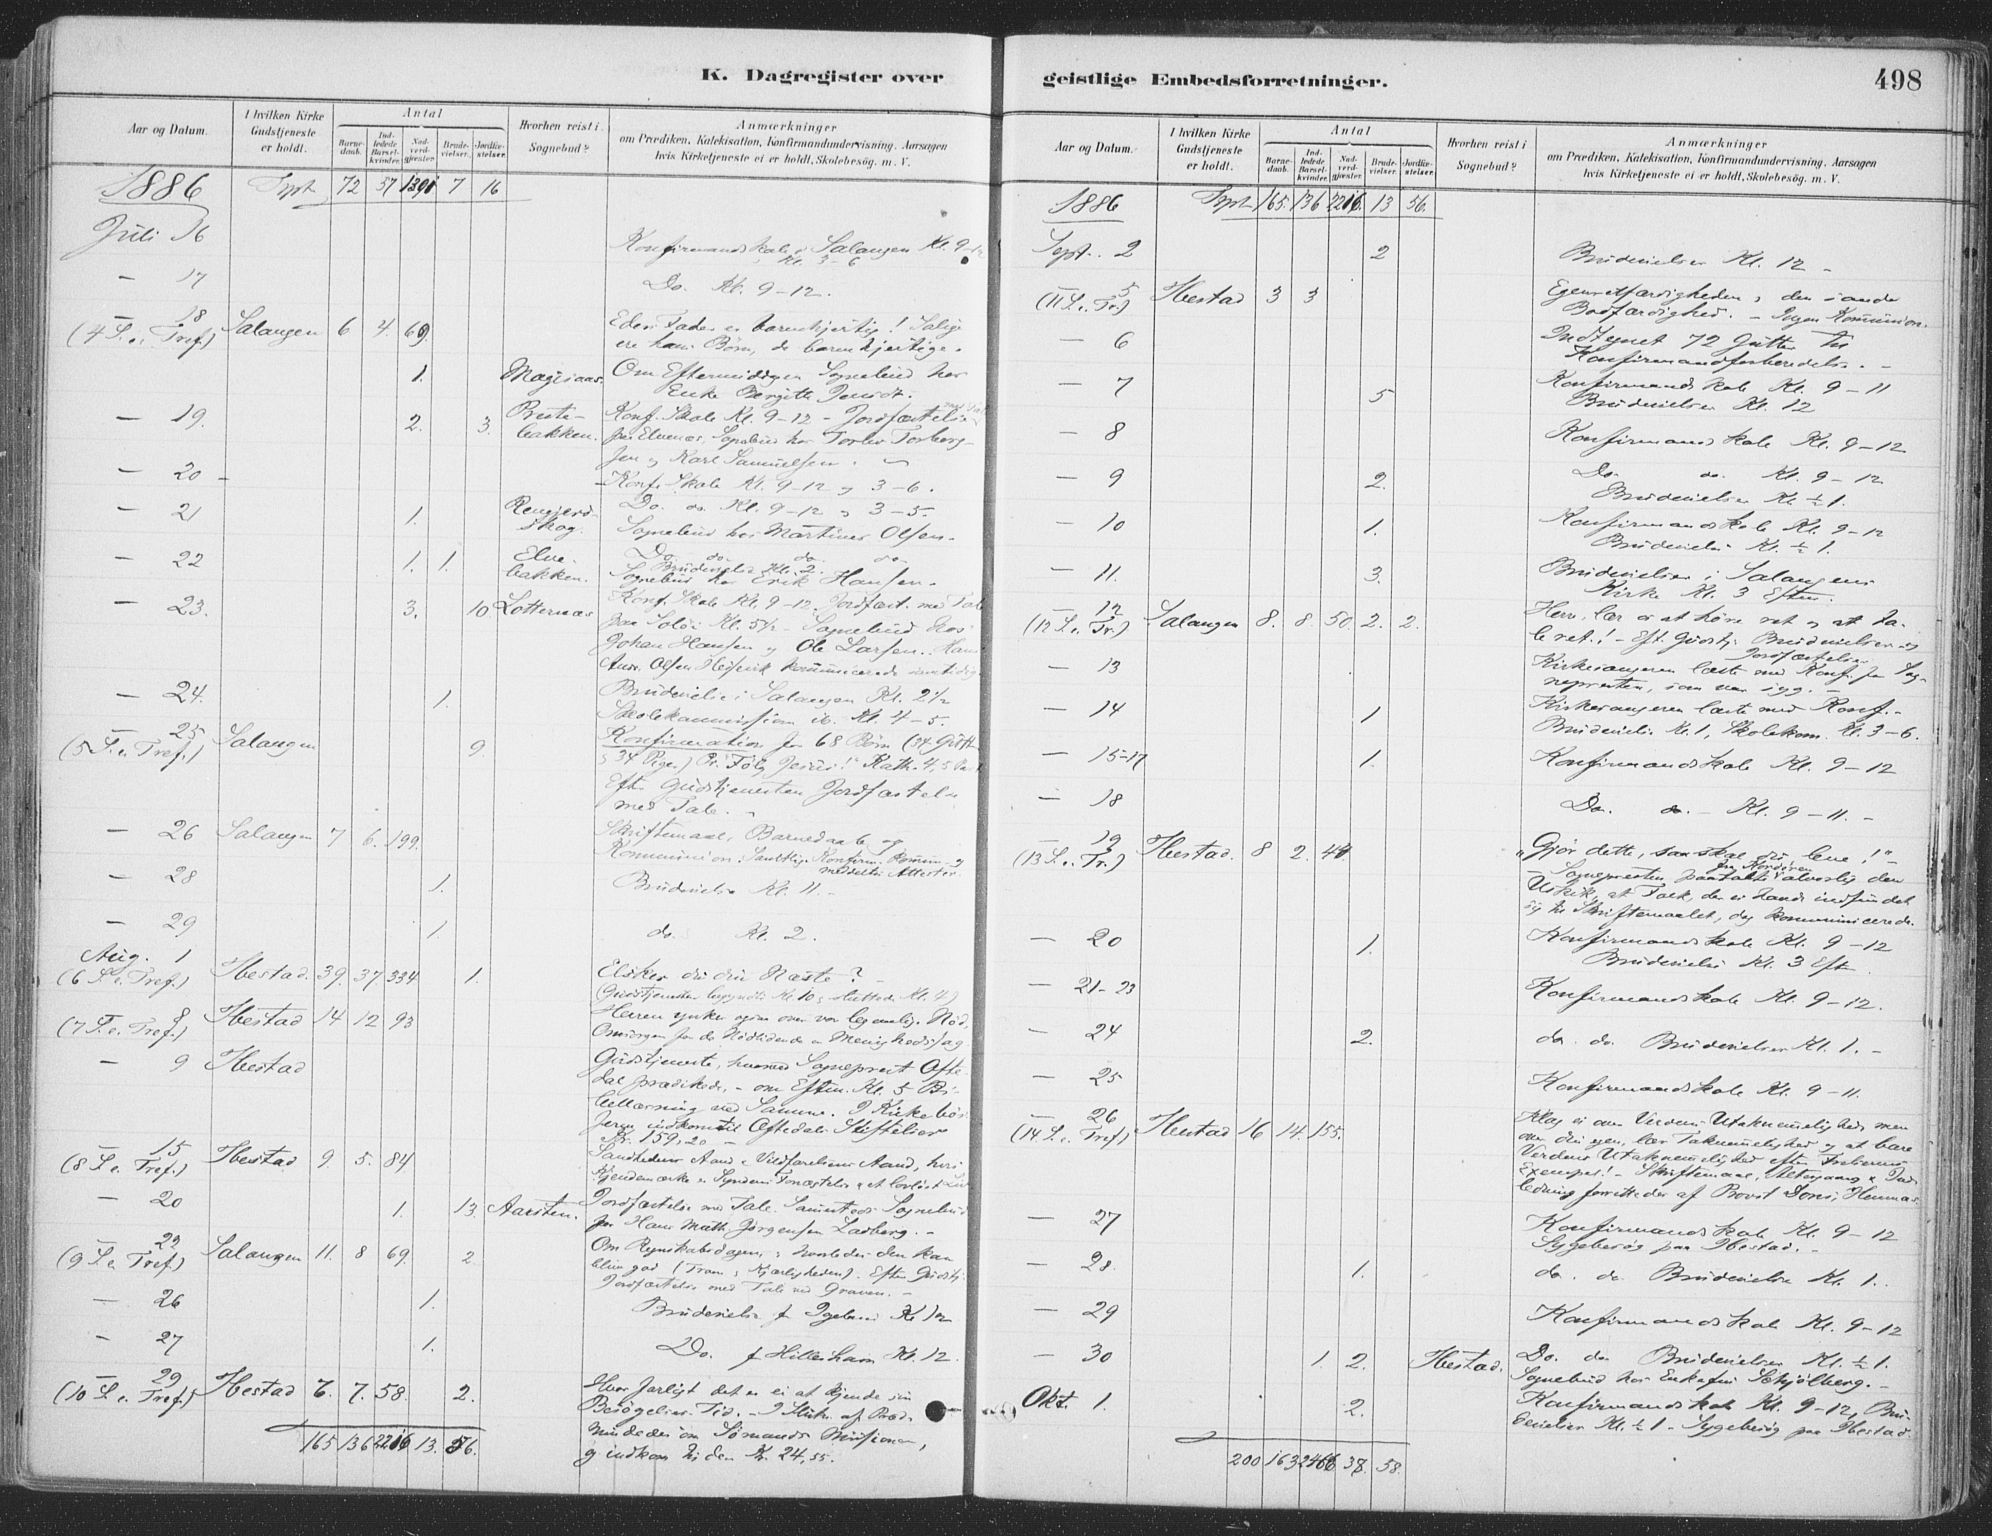 K. Dagregister over
Aar og Datum.
I hvilken Kirke Gudstjeneste er holdt.
Antal
Barne-daab.
Ind-ledede Barsel-kvinder.
Nad-verd-gjester.
Brude-vielser.
Jordfæ-stelser.
Hvorhen reist i Sognebud?
Anmærkninger
om Prædiken, Katekisation, Konfirmandundervisning, Aarsagen
hvis Kirketjeneste ei er holdt, Skolebesøg. m. V.
1886 Tpt. 72 57 1301 7 16
Juli 16 Konfirmandskole i Salangen Kl. 9-12
Kl. 3-6
— 17 Do. Kl. 9-12.
— 18
(4 S. e. Tref.) Salangen 6 4. 69. Eders Fader er barmhjertig! Salige
ere hans Børn, de barmhjertige.
1. Om Eftermiddagen Sognebud hos
Enke Bergitte
— 19. 2. 3. Konf. Skole Kl. 9-12 - Jordfæstelse
bakken. paa Elvenes, Sognebud hos
sen og Karl Samuelsen.
— 20 - Konf. Skole Kl. 9-12 og 3-6.
— 21 1. Do. do. Kl. 9-12 og 3-5.
skog. Sognebud hos Martinus Olsen.
— 22 1. 1. Elve- Do. do. do. do.
Brudevielse Kl. 2.
bakken. Sognebud hos Erik Hansen.
— 23. 3. 10 Konf. Skole Kl. 9-12. Jordfæst. med Tale
paa Kl. 5½ - Sognebud hos
Johan Hansen og Ole Larsen. Hans
Olsen kommunicerede samtidig.
— 24. 1. Brudevielse i Salangen Kl. 2½
Skolekommission ib. Kl. 4-5.
— 25
(5 S. e. Tref.) Salangen 9. Konfirmation for 68 Børn (34 Gutter
34 Piger) Pr. "Følg Jesus!"
Efter Gudstjenesten Jordfæstelse
med Tale.
— 26 Salangen 7 6. 199. Skriftemaal, Barnedaab og
Kommunion.
meddelte Attester.
— 28 1. Brudevielse Kl. 11.
— 29 1. do. Kl. 2.
Aug. 1
(6 S. e. Tref.) Ibestad. 39. 37 334 1. Elsker du din Næste? -
(Gudstjenesten begyndte Kl. 10 og sluttede Kl. 4)
— 8
(7 S. e. Tref.) Ibestad 14 12 93 Herren ynker ogsaa over vor legemlige Nød,
Omsorgen for de Nødlidende en Menighedssag.
— 9 Ibestad Gudstjeneste, hvorved Sogneprest Ofte-
dal prædikede, - om Eftm. Kl. 5 Bi-
bellæsning ved Samme. I Kirkebøs-
serne indkom til Oftedals Stiftelser
Kr. 159,20 -
— 15
(8 S. e. Tref.) Ibestad 9. 5. 84 Sandhedens Aand og Vildfarelsens Aand, hvis
Kjendemærke er Syndens Fornægtelse
— 20 1. 13. Aarsten. Jordfæstelse med Tale. Samtidig Sognebud
for Hans Math. Jørgensen Ladberg. -
— 22
(9 S. e. Tref.) Salangen 11. 8 69. 2. Om Regnskabsdagen, hvorledes den kan
blive god (Troen og Kjærligheden). Efter Gudstj.
Jordfæstelse med Tale ved Graven. -
— 26 1. Brudevielse f Kl 12
— 27 1. Do. f Hillesham Kl. 12.
— 29
(10 S. e. Tref.) Ibestad 6. 7. 58. 2. Hvor farligt det er ei at kjende sin
Besøgelses Tid. -
mindedes om Sømands Missionen,
og indkom til den Kr. 24,55.
165 136 2216 13. 56.
geistlige Embedsforretninger.
498
Aar og Datum.
I hvilken Kirke Gudstjeneste er holdt.
Antal
Barne-daab.
Ind-ledede Barsel-kvinder.
Nad-verd-gjester.
Brude-vielser.
Jordfæ-stelser.
Hvorhen reist i Sognebud?
Anmærkninger
om Prædiken, Katekisation, Konfirmandundervisning, Aarsagen
hvis Kirketjeneste ei er holdt, Skolebesög. m. V.
1886 Tpt. 165. 136 2216. 13 56.
Sept. 2 2 Brudevielser Kl. 12 -
— 5
(11 S. e. Tr.) Ibestad 3 3 Egenretfærdigheden og den sande
Bodfærdighed. - Ingen Kommunion.
— 6 Indtegnet 72 Gutter til
Konfirmandforberedelse. -
— 7 5 Konfirmandskole Kl. 9-11
Brudevielser Kl. 12
— 8 Konfirmandskole Kl. 9-12
— 9 2. Do. do. Kl. 9-12
Brudevielser Kl. ½1.
— 10 1. Konfirmandskole Kl. 9-12
Brudevielse Kl. ½1.
— 11. 3. Brudevielser i Salangens
Kirke Kl. 3 Eftm.
— 12
(12 S. e. Tr.) Salangen 8. 8. 50. 2. 2. Herre, lær os at høre ret og at ta-
le ret! - Eft. Gudstj. Brudevielser og
Jordfæstelser
— 13 Kirkesangeren læste med Konf. for Sog-
nepresten, som var syg. -
— 14 1 Kirkesangeren læste med Konf. -
Brudevielse Kl. 1, Skolekom. Kl. 3-6.
— 15-17 1. Konfirmandskole Kl. 9-12
— 18 Do. do. - Kl. 9-11. -
— 19
(13 S. e. Tr.) Ibestad. 8 2. 41 "Gjør dette, saa skal du leve!" -
fra Kordøren
Sognepresten paatalte alvorlig den
Uskik, at Folk, der ei havde indfundet
sig til Skriftemaalet, dog kommunicerede.
— 20 1. Konfirmandskole Kl. 9-12
Brudevielse Kl. 3 Eft.
— 21-23 Konfirmandskole Kl. 9-12.
— 24 2. do. do. Brudevielser Kl. 1. -
— 25 Konfirmandskole Kl. 9-11.
— 26
(14 S. e. Tref.) Ibestad 16 14. 155. Klag ei over Verdens Utaknemmelighed, men
over din egen, lær Taknemmelighed og at bære
Verdens Utaknemmelighed efter Frelserens
Exempel! - Skriftemaal, Altergang
ledning forrettedes af Provst
— 27 Konfirmandskole Kl. 9-12
Sygebesøg paa Ibestad. -
— 28 1. do. do. Brudevielse Kl. 1.
— 29 Konfirmandskole Kl. 9-12
— 30 1. 2. Ibestad. Do. do. Brudevielser Kl. ½1.
Sognebud hos Enkefru Schjølberg. -
Okt. 1. 2. Konfirmandskole Kl. 9-12, Bru-
devielser Kl. ½1 - Sygebesøg paa Ibestad.
200 163 2466 38. 58.